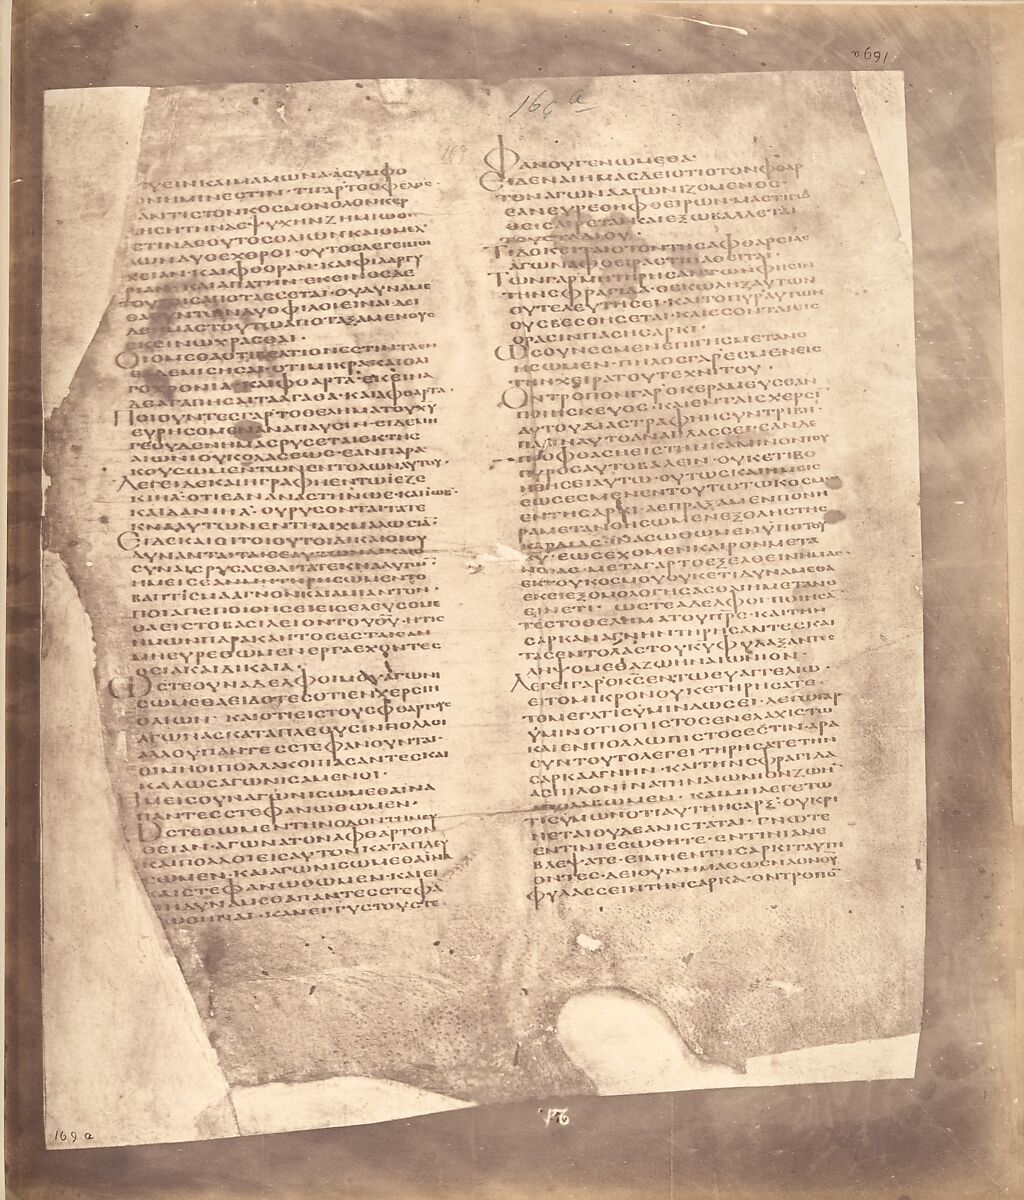 ΥΕΙΝΚΑΙΜΑΜΩΝΑ·ΑϹΥΜΦΟ
ΟΝΗΜΙΝΕϹΤΙΝ·ΤΙΓΑΡΤΟΟΦΕΛΟϹ·
ΑΝΤΙϹΤΟΝΚΟϹΜΟΝΟΛΟΝΚΕΡ
ΔΗϹΗΤΗΝΔΕΨΥΧΗΝΖΗΜΙΩΘΗ
ΕϹΤΙΝΔΕΟΥΤΟϹΟΑΙΩΝΚΑΙΟΜΕΛ
ΛΩΝΔΥΟΕΧΘΡΟΙ·ΟΥΤΟϹΛΕΓΕΙΜΟΙ
ΧΕΙΑΝ·ΚΑΙΦΘΟΡΑΝ·ΚΑΙΦΙΛΑΡΓΥ
ΡΙΑΝ·ΚΑΙΑΠΑΤΗΝ·ΕΚΕΙΝΟϹΔΕ
ΤΟΥΤΟΙϹΑΠΟΤΑϹϹΕΤΑΙ·ΟΥΔΥΝΑΜΕ
ΘΑΟΥΝΤΩΝΔΥΟΦΙΛΟΙΕΙΝΑΙ·ΔΕΙ
ΔΕΗΜΑϹΤΟΥΤΩΑΠΟΤΑΞΑΜΕΝΟΥϹ
ΕΚΕΙΝΩΧΡΑϹΘΑΙ·
ΟΙΟΜΕΘΑΟΤΙΒΕΛΤΙΟΝΕϹΤΙΝΤΑΕΝ
ΘΑΔΕΜΙϹΗϹΑΙ·ΟΤΙΜΙΚΡΑΚΑΙΟΛΙ
ΓΟΧΡΟΝΙΑ·ΚΑΙΦΘΑΡΤΑ·ΕΚΕΙΝΑ
ΔΕΑΓΑΠΗϹΑΙΤΑΑΓΑΘΑ·ΚΑΙΑΦΘΑΡΤΑ·
ΠΟΙΟΥΝΤΕϹΓΑΡΤΟΘΕΛΗΜΑΤΟΥΧΥ
ΕΥΡΗϹΟΜΕΝΑΝΑΠΑΥϹΙΝ·ΕΙΔΕΜΗ
ΓΕΟΥΔΕΝΗΜΑϹΡΥϹΕΤΑΙΕΚΤΗϹ
ΑΙΩΝΙΟΥΚΟΛΑϹΕΩϹ·ΕΑΝΠΑΡΑ
ΚΟΥϹΩΜΕΝΤΩΝΕΝΤΟΛΩΝΑΥΤΟΥ·
ΛΕΓΕΙΔΕΚΑΙΗΓΡΑΦΗΕΝΤΩΙΕΖΕ
ΚΙΗΛ·ΟΤΙΕΑΝΑΝΑϹΤΗΝΩΕ·ΚΑΙΙΩΒ·
ΚΑΙΔΑΝΙΗΛ·ΟΥΡΥϹΟΝΤΑΙΤΑΤΕ
ΚΝΑΑΥΤΩΝΕΝΤΗΑΙΧΜΑΛΩϹΙΑ·
ΕΙΔΕΚΑΙΟΙΤΟΙΟΥΤΟΙΔΙΚΑΙΟΙΟΥ
ΔΥΝΑΝΤΑΙΤΑΙϹΕΑΥΤΩΝΔΙΚΑΙΟ
ϹΥΝΑΙϹΡΥϹΑϹΘΑΙΤΑΤΕΚΝΑΑΥΤΩ
ΗΜΕΙϹΕΑΝΜΗΤΗΡΗϹΩΜΕΝΤΟ
ΒΑΠΤΙϹΜΑΑΓΝΟΝΚΑΙΑΜΙΑΝΤΟΝ·
ΠΟΙΑΠΕΠΟΙΘΗϹΕΙΕΙϹΕΛΕΥϹΟΜΕ
ΘΑΕΙϹΤΟΒΑϹΙΛΕΙΟΝΤΟΥΘΥ·ΗΤΙϹ
ΗΜΩΝΠΑΡΑΚΛΗΤΟϹΕϹΤΑΙΕΑΝ
ΜΗΕΥΡΕΘΩΜΕΝΕΡΓΑΕΧΟΝΤΕϹ
ΟϹΙΑΚΑΙΔΙΚΑΙΑ·
ΩϹΤΕΟΥΝΑΔΕΛΦΟΙΜΟΥΑΓΩΝΙ
ϹΩΜΕΘΑΕΙΔΟΤΕϹΟΤΙΕΝΧΕΡϹΙΝ
ΟΑΓΩΝ·ΚΑΙΟΤΙΕΙϹΤΟΥϹΦΘΑΡΤΟΥϹ
ΑΓΩΝΑϹΚΑΤΑΠΛΕΟΥϹΙΝΠΟΛΛΟΙ
ΑΛΛΟΥΠΑΝΤΕϹϹΤΕΦΑΝΟΥΝΤΑΙ·
ΟΙΜΗΟΙΠΟΛΛΑΚΟΠΙΑϹΑΝΤΕϹΚΑΙ
ΚΑΛΩϹΑΓΩΝΙϹΑΜΕΝΟΙ·
ΗΜΕΙϹΟΥΝΑΓΩΝΙϹΩΜΕΘΑΙΝΑ
ΠΑΝΤΕϹϹΤΕΦΑΝΩΘΩΜΕΝ·
ΩϹΤΕΘΩΜΕΝΤΗΝΟΔΟΝΤΗΝΕΥ
ΘΕΙΑΝ·ΑΓΩΝΑΤΟΝΑΦΘΑΡΤΟΝ
ΚΑΙΠΟΛΛΟΙΕΙϹΑΥΤΟΝΚΑΤΑΠΛΕΥ
ϹΩΜΕΝ·ΚΑΙΑΓΩΝΙϹΩΜΕΘΑΙΝΑ
ΚΑΙϹΤΕΦΑΝΩΘΩΜΕΝ·ΚΑΙΕΙ
ΜΗΔΥΝΑΜΕΘΑΠΑΝΤΕϹϹΤΕΦΑ
ΝΩΘΗΝΑΙ·ΚΑΝΕΓΓΥϹΤΟΥϹΤΕ
ΦΑΝΟΥΓΕΝΩΜΕΘΑ·
ΕΙΔΕΝΑΙΗΜΑϹΔΕΙΟΤΙΟΤΟΝΦΘΑΡ
ΤΟΝΑΓΩΝΑΑΓΩΝΙΖΟΜΕΝΟϹ·
ΕΑΝΕΥΡΕΘΗΦΘΕΙΡΩΝ·ΜΑϹΤΙΓΩ
ΘΕΙϹΑΙΡΕΤΑΙΚΑΙΕΞΩΒΑΛΛΕΤΑΙ
ΤΟΥϹΤΑΔΙΟΥ·
ΤΙΔΟΚΕΙΤΑΙΟΤΟΝΤΗϹΑΦΘΑΡϹΙΑϹ
ΑΓΩΝΑΦΘΕΙΡΑϹΤΙΠΑΘΕΙΤΑΙ·
ΤΩΝΓΑΡΜΗΤΗΡΗϹΑΝΤΩΝΦΗϹΙΝ
ΤΗΝϹΦΡΑΓΙΔΑ·ΟϹΚΩΛΗΞΑΥΤΩΝ
ΟΥΤΕΛΕΥΤΗϹΕΙ·ΚΑΙΤΟΠΥΡΑΥΤΩΝ
ΟΥϹΒΕϹΘΗϹΕΤΑΙ·ΚΑΙΕϹΟΝΤΑΙΕΙϹ
ΟΡΑϹΙΝΠΑϹΗϹΑΡΚΙ·
ΩϹΟΥΝΕϹΜΕΝΕΠΙΓΗϹΜΕΤΑΝΟ
ΗϹΩΜΕΝ·ΠΗΛΟϹΓΑΡΕϹΜΕΝΕΙϹ
ΤΗΝΧΕΙΡΑΤΟΥΤΕΧΝΙΤΟΥ·
ΟΝΤΡΟΠΟΝΓΑΡΟΚΕΡΑΜΕΥϹΕΑΝ
ΠΟΙΗϹΚΕΥΟϹ·ΚΑΙΕΝΤΑΙϹΧΕΡϹΙ
ΑΥΤΟΥΔΙΑϹΤΡΑΦΗΗϹΥΝΤΡΙΒΗ·
ΠΑΛΙΝΑΥΤΟΑΝΑΠΛΑϹϹΕΙ·ΕΑΝΔΕ
ΠΡΟΦΘΑϹΗΕΙϹΤΗΝΚΑΜΙΝΟΝΤΟΥ
ΠΥΡΟϹΑΥΤΟΒΑΛΕΙΝ·ΟΥΚΕΤΙΒΟ
ΗΘΗϹΕΙΑΥΤΩ·ΟΥΤΩϹΚΑΙΗΜΕΙϹ
ΕΩϹΕϹΜΕΝΕΝΤΟΥΤΩΤΩΚΟϹΜΩ
ΕΝΤΗϹΑΡΚΙ·ΑΕΠΡΑΞΑΜΕΝΠΟΝΗ
ΡΑΜΕΤΑΝΟΗϹΩΜΕΝΕΞΟΛΗϹΤΗϹ
ΚΑΡΔΙΑϹ·ΙΝΑϹΩΘΩΜΕΝΥΠΟΤΟΥ
ΚΥ·ΕΩϹΕΧΟΜΕΝΚΑΙΡΟΝΜΕΤΑ
ΝΟΙΑϹ·ΜΕΤΑΓΑΡΤΟΕΞΕΛΘΕΙΝΗΜΑϹ·
ΕΚΤΟΥΚΟϹΜΟΥΟΥΚΕΤΙΔΥΝΑΜΕΘΑ
ΕΚΕΙΕΞΟΜΟΛΟΓΗϹΑϹΘΑΙΗΜΕΤΑΝΟ
ΕΙΝΕΤΙ·ΩϹΤΕΑΔΕΛΦΟΙΠΟΙΗϹΑ
ΤΕϹΤΟΘΕΛΗΜΑΤΟΥΠΡϹ·ΚΑΙΤΗΝ
ϹΑΡΚΑΑΓΝΗΝΤΗΡΗϹΑΝΤΕϹΚΑΙ
ΤΑϹΕΝΤΟΛΑϹΤΟΥΚΥΦΥΛΑΞΑΝΤΕϹ
ΛΗΨΟΜΕΘΑΖΩΗΝΑΙΩΝΙΟΝ·
ΛΕΓΕΙΓΑΡΟΚϹΕΝΤΩΕΥΑΓΓΕΛΙΩ·
ΕΙΤΟΜΙΚΡΟΝΟΥΚΕΤΗΡΗϹΑΤΕ·
ΤΟΜΕΓΑΤΙϹΥΜΙΝΔΩϹΕΙ·ΛΕΓΩΓΑΡ
ΥΜΙΝΟΤΙΟΠΙϹΤΟϹΕΝΕΛΑΧΙϹΤΩ
ΚΑΙΕΝΠΟΛΛΩΠΙϹΤΟϹΕϹΤΙΝ·ΑΡΑ
ΟΥΝΤΟΥΤΟΛΕΓΕΙ·ΤΗΡΗϹΑΤΕΤΗΝ
ϹΑΡΚΑΑΓΝΗΝ·ΚΑΙΤΗΝϹΦΡΑΓΙΔΑ
ΑϹΠΙΛΟΝΙΝΑΤΗΝΑΙΩΝΙΟΝΖΩΗΝ
ΑΠΟΛΑΒΩΜΕΝ·ΚΑΙΜΗΛΕΓΕΤΩ
ΤΙϹΥΜΩΝΟΤΙΑΥΤΗΗϹΑΡΞ·ΟΥΚΡΙ
ΝΕΤΑΙΟΥΔΕΑΝΙϹΤΑΤΑΙ·ΓΝΩΤΕ
ΕΝΤΙΝΙΕϹΩΘΗΤΕ·ΕΝΤΙΝΙΑΝΕ
ΒΛΕΨΑΤΕ·ΕΙΜΗΕΝΤΗϹΑΡΚΙΤΑΥΤΗ
ΟΝΤΕϹ·ΔΕΙΟΥΝΗΜΑϹΩϹΝΑΟΝΘΥ
ΦΥΛΑϹϹΕΙΝΤΗΝϹΑΡΚΑ·ΟΝΤΡΟΠΟ
169 a